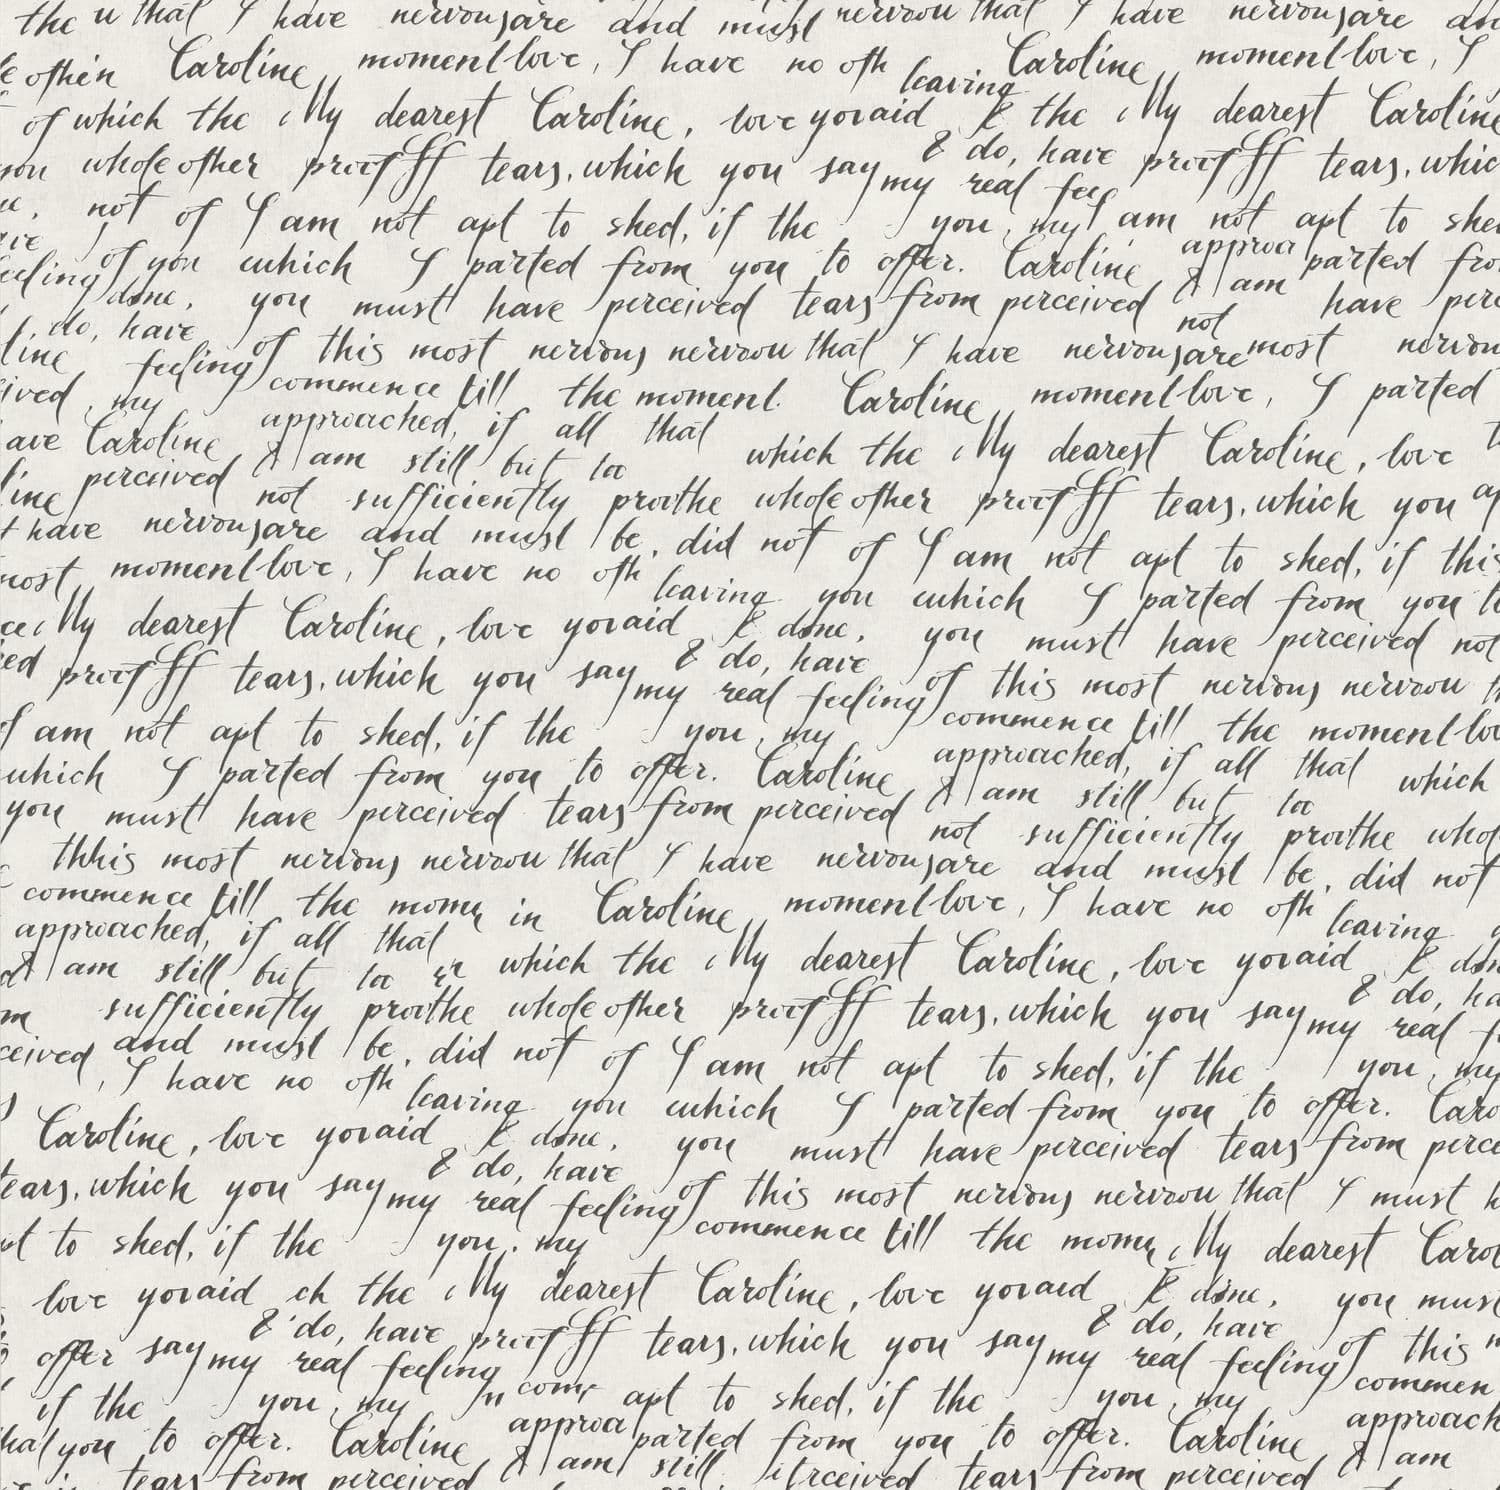 the u that I have nervous are and must nervou that I have nervous are and
often Caroline moment love, I have no oth leaving Caroline moment love, I
of which the My dearest Caroline, love you said & the My dearest Caroline
you whole other proof tears, which you say & do, have proof tears, which
my real fee
u, not of I am not apt to shed, if the you, my I am not apt to shed
approa
feeling of you which I parted from you to offer. Caroline & I am parted fro
done, you must have perceived tears from perceived not have perc
do, have
line feeling of this most nervous nervou that I have nervous are most nervou
commence till the moment Caroline moment love, I parted
ived, my approached, if all that
ave Caroline which the My dearest Caroline, love
perceived & I am still but too
line not sufficiently proo the whole other proof tears, which you ap
t have nervous are and must be, did not of I am not apt to shed, if this
most moment love, I have no oth leaving you which I parted from you to
ce My dearest Caroline, love you said & done, you must have perceived not
ed proof tears, which you say & do, have of this most nervous nervou th
my real feeling commence till the moment lov
I am not apt to shed, if the you, my approached, if all that which
which I parted from you to offer. Caroline & I am still but too
you must have perceived tears from perceived not sufficiently proo the whol
thhis most nervous nervou that I have nervous are and must be, did not
commence till the mom in Caroline moment love, I have no oth leaving
approached, if all that which the My dearest Caroline, love you said & don
I am still but too & do, ha
sufficiently proo the whole other proof tears, which you say my real f
ceived and must be, did not of I am not apt to shed, if the you, my
, I have no oth leaving you which I parted from you to offer. Caro
Caroline, love you said & done, you must have perceived tears from perce
& do, have
tears, which you say my real feeling of this most nervous nervou that I must h
commence till the mom My dearest Caro
pt to shed, if the you, my
love you said ch the My dearest Caroline, love you said & done, you must
& do, have proof tears, which you say & do, have of this
offer say my real feeling my real feeling commen
if the you, my com apt to shed, if the you, my
approa approach
hat you to offer. Caroline parted from you to offer. Caroline
& I am still & I am
tears from perceived ceived tears from perceived